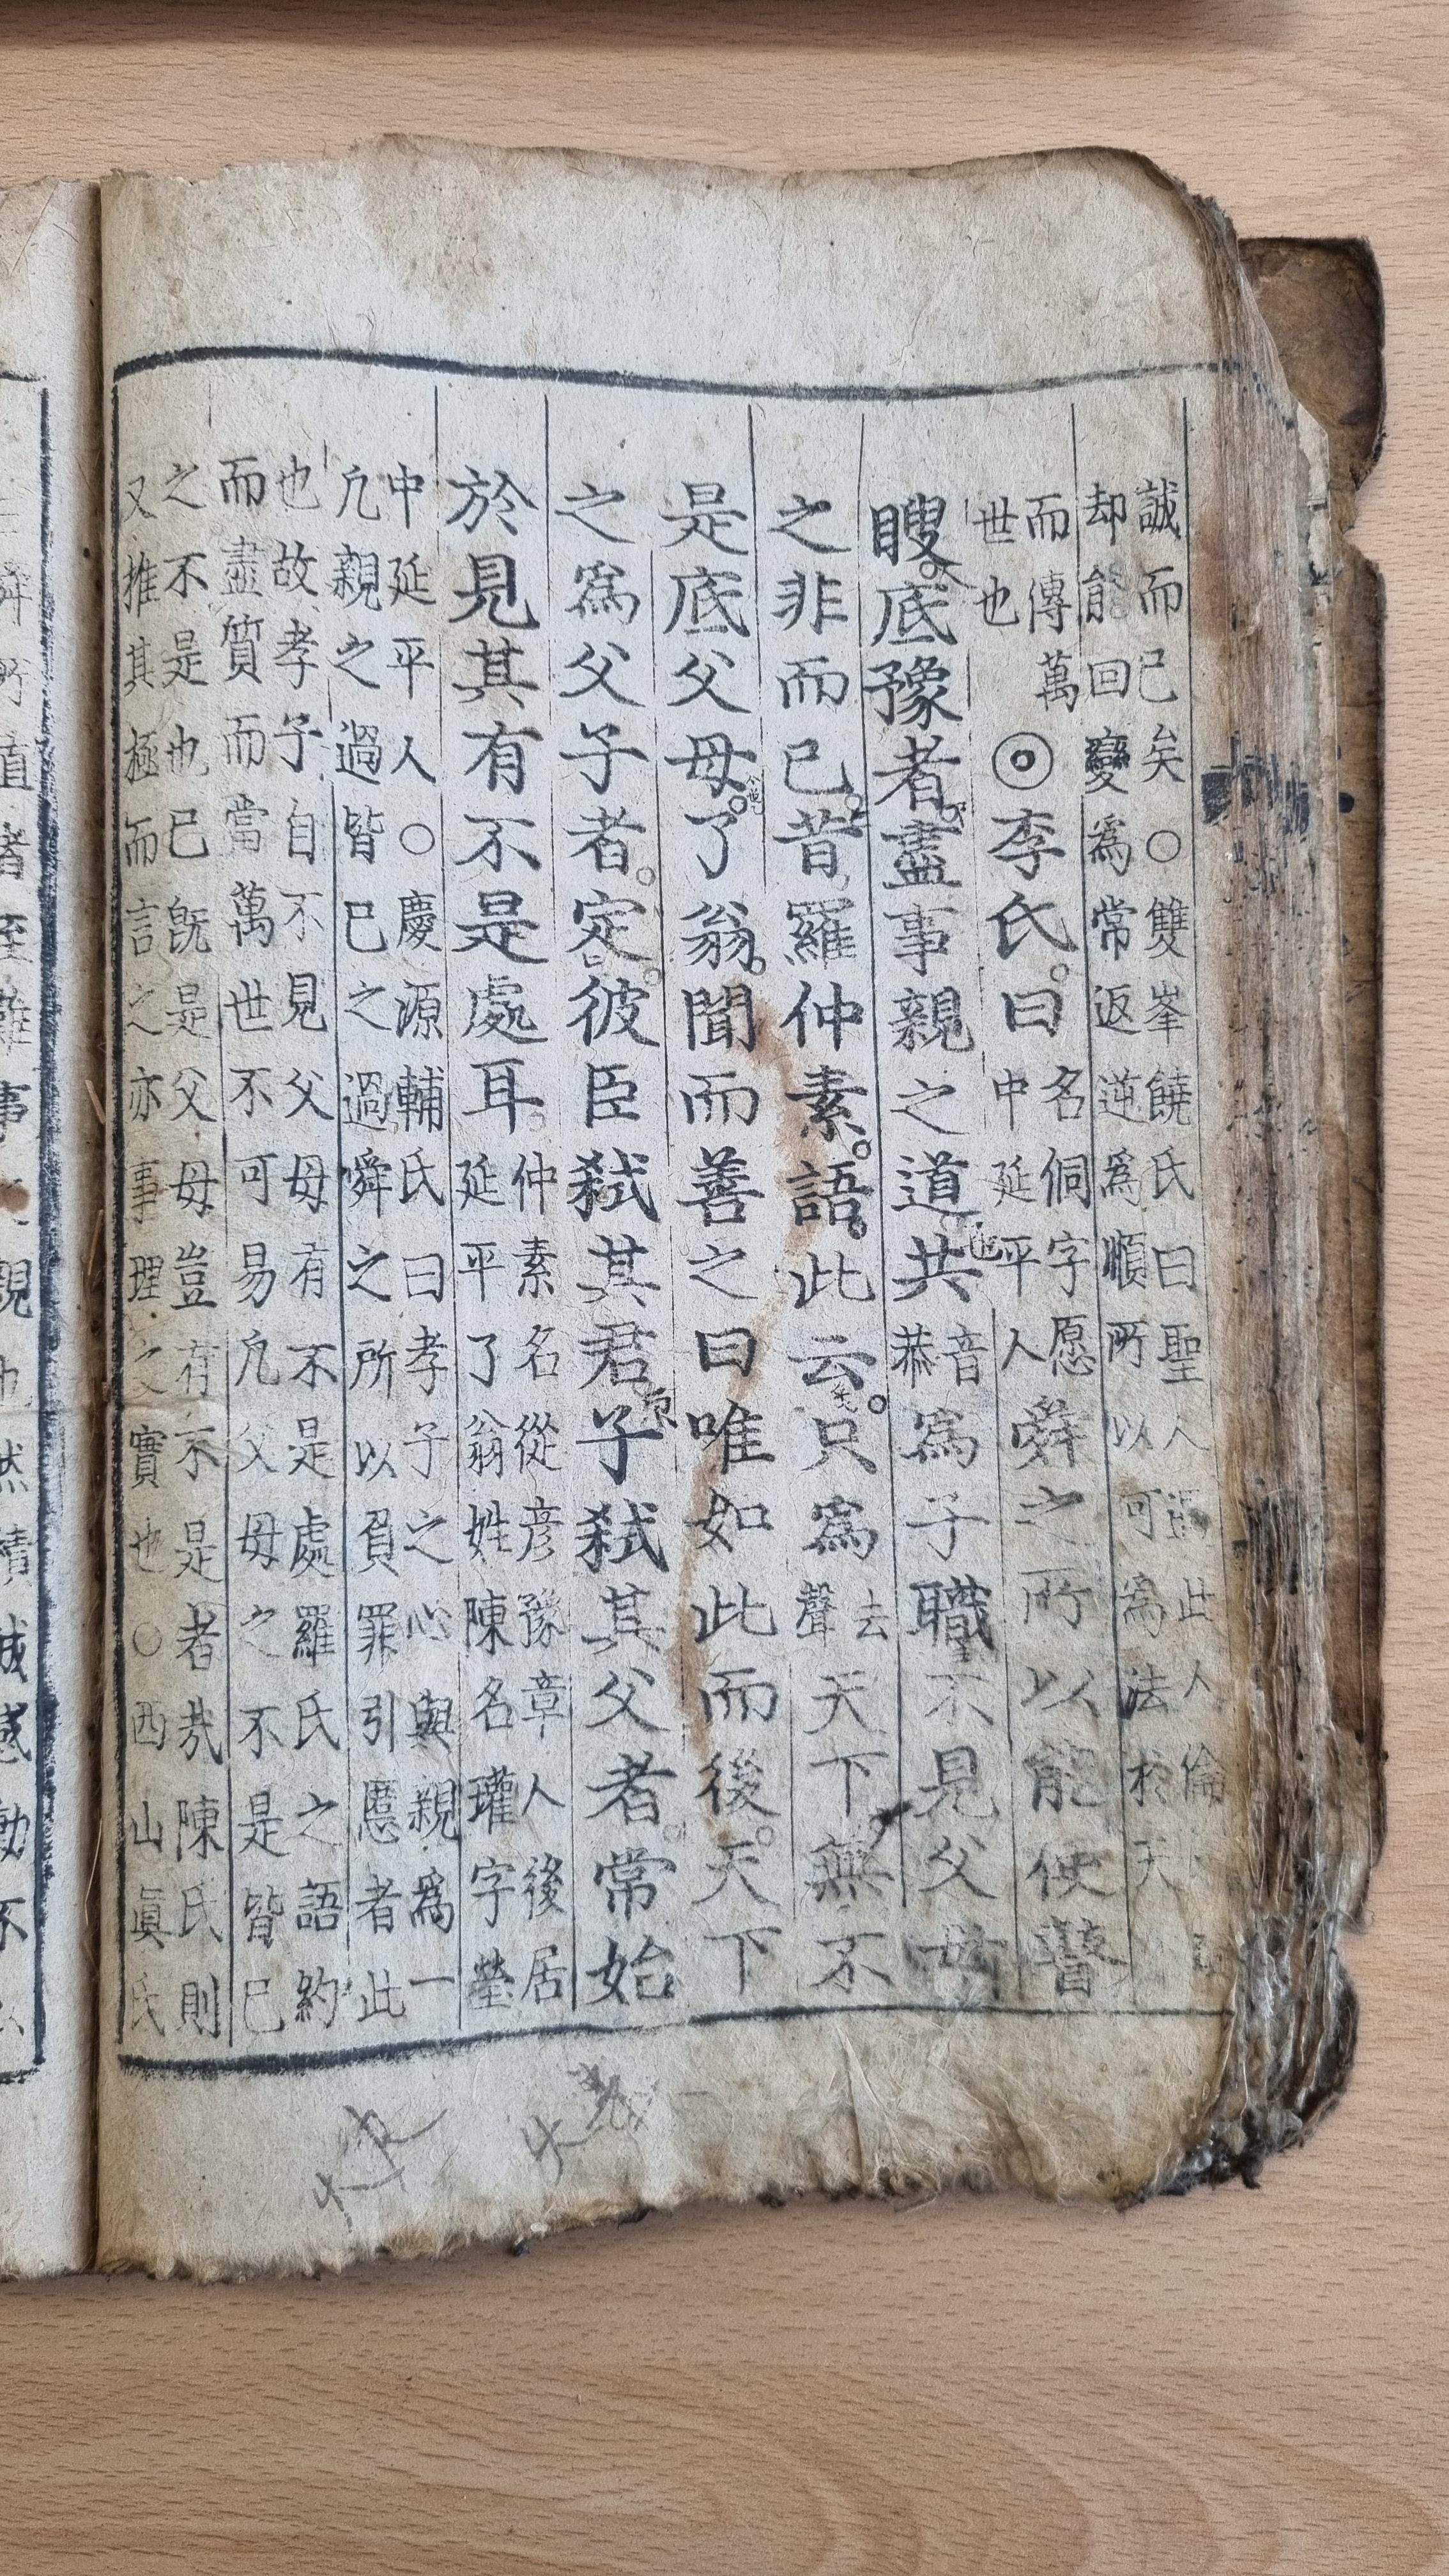 誠而已矣○雙峯饒氏曰聖人遇此人倫
却能回變爲常返逆爲順所以可爲法於天
而傳萬
世也
◎李氏曰
名侗字愿
中延平人
舜之所以能使瞽
瞍底豫者盡事親之道共
音
恭
爲子職不見父母
之非而已昔羅仲素語此云只爲
去
聲
天下無不
是底父母了翁聞而善之曰唯如此而後天下
之爲父子者定彼臣弑其君子弑其父者常始
於見其有不是處耳
仲素名從彦豫章人後居
延平了翁姓陳名瓘字瑩
中延平人○慶源輔氏曰孝子之心與親爲一
凡親之過皆已之過舜之所以負罪引慝者此
也故孝子自不見父母有不是處羅氏之語約
而盡質而當萬世不可易凡父母之不是皆已
之不是也已旣是父母豈有不是者哉陳氏則
又推其極而言之亦事理之實也○西山眞氏